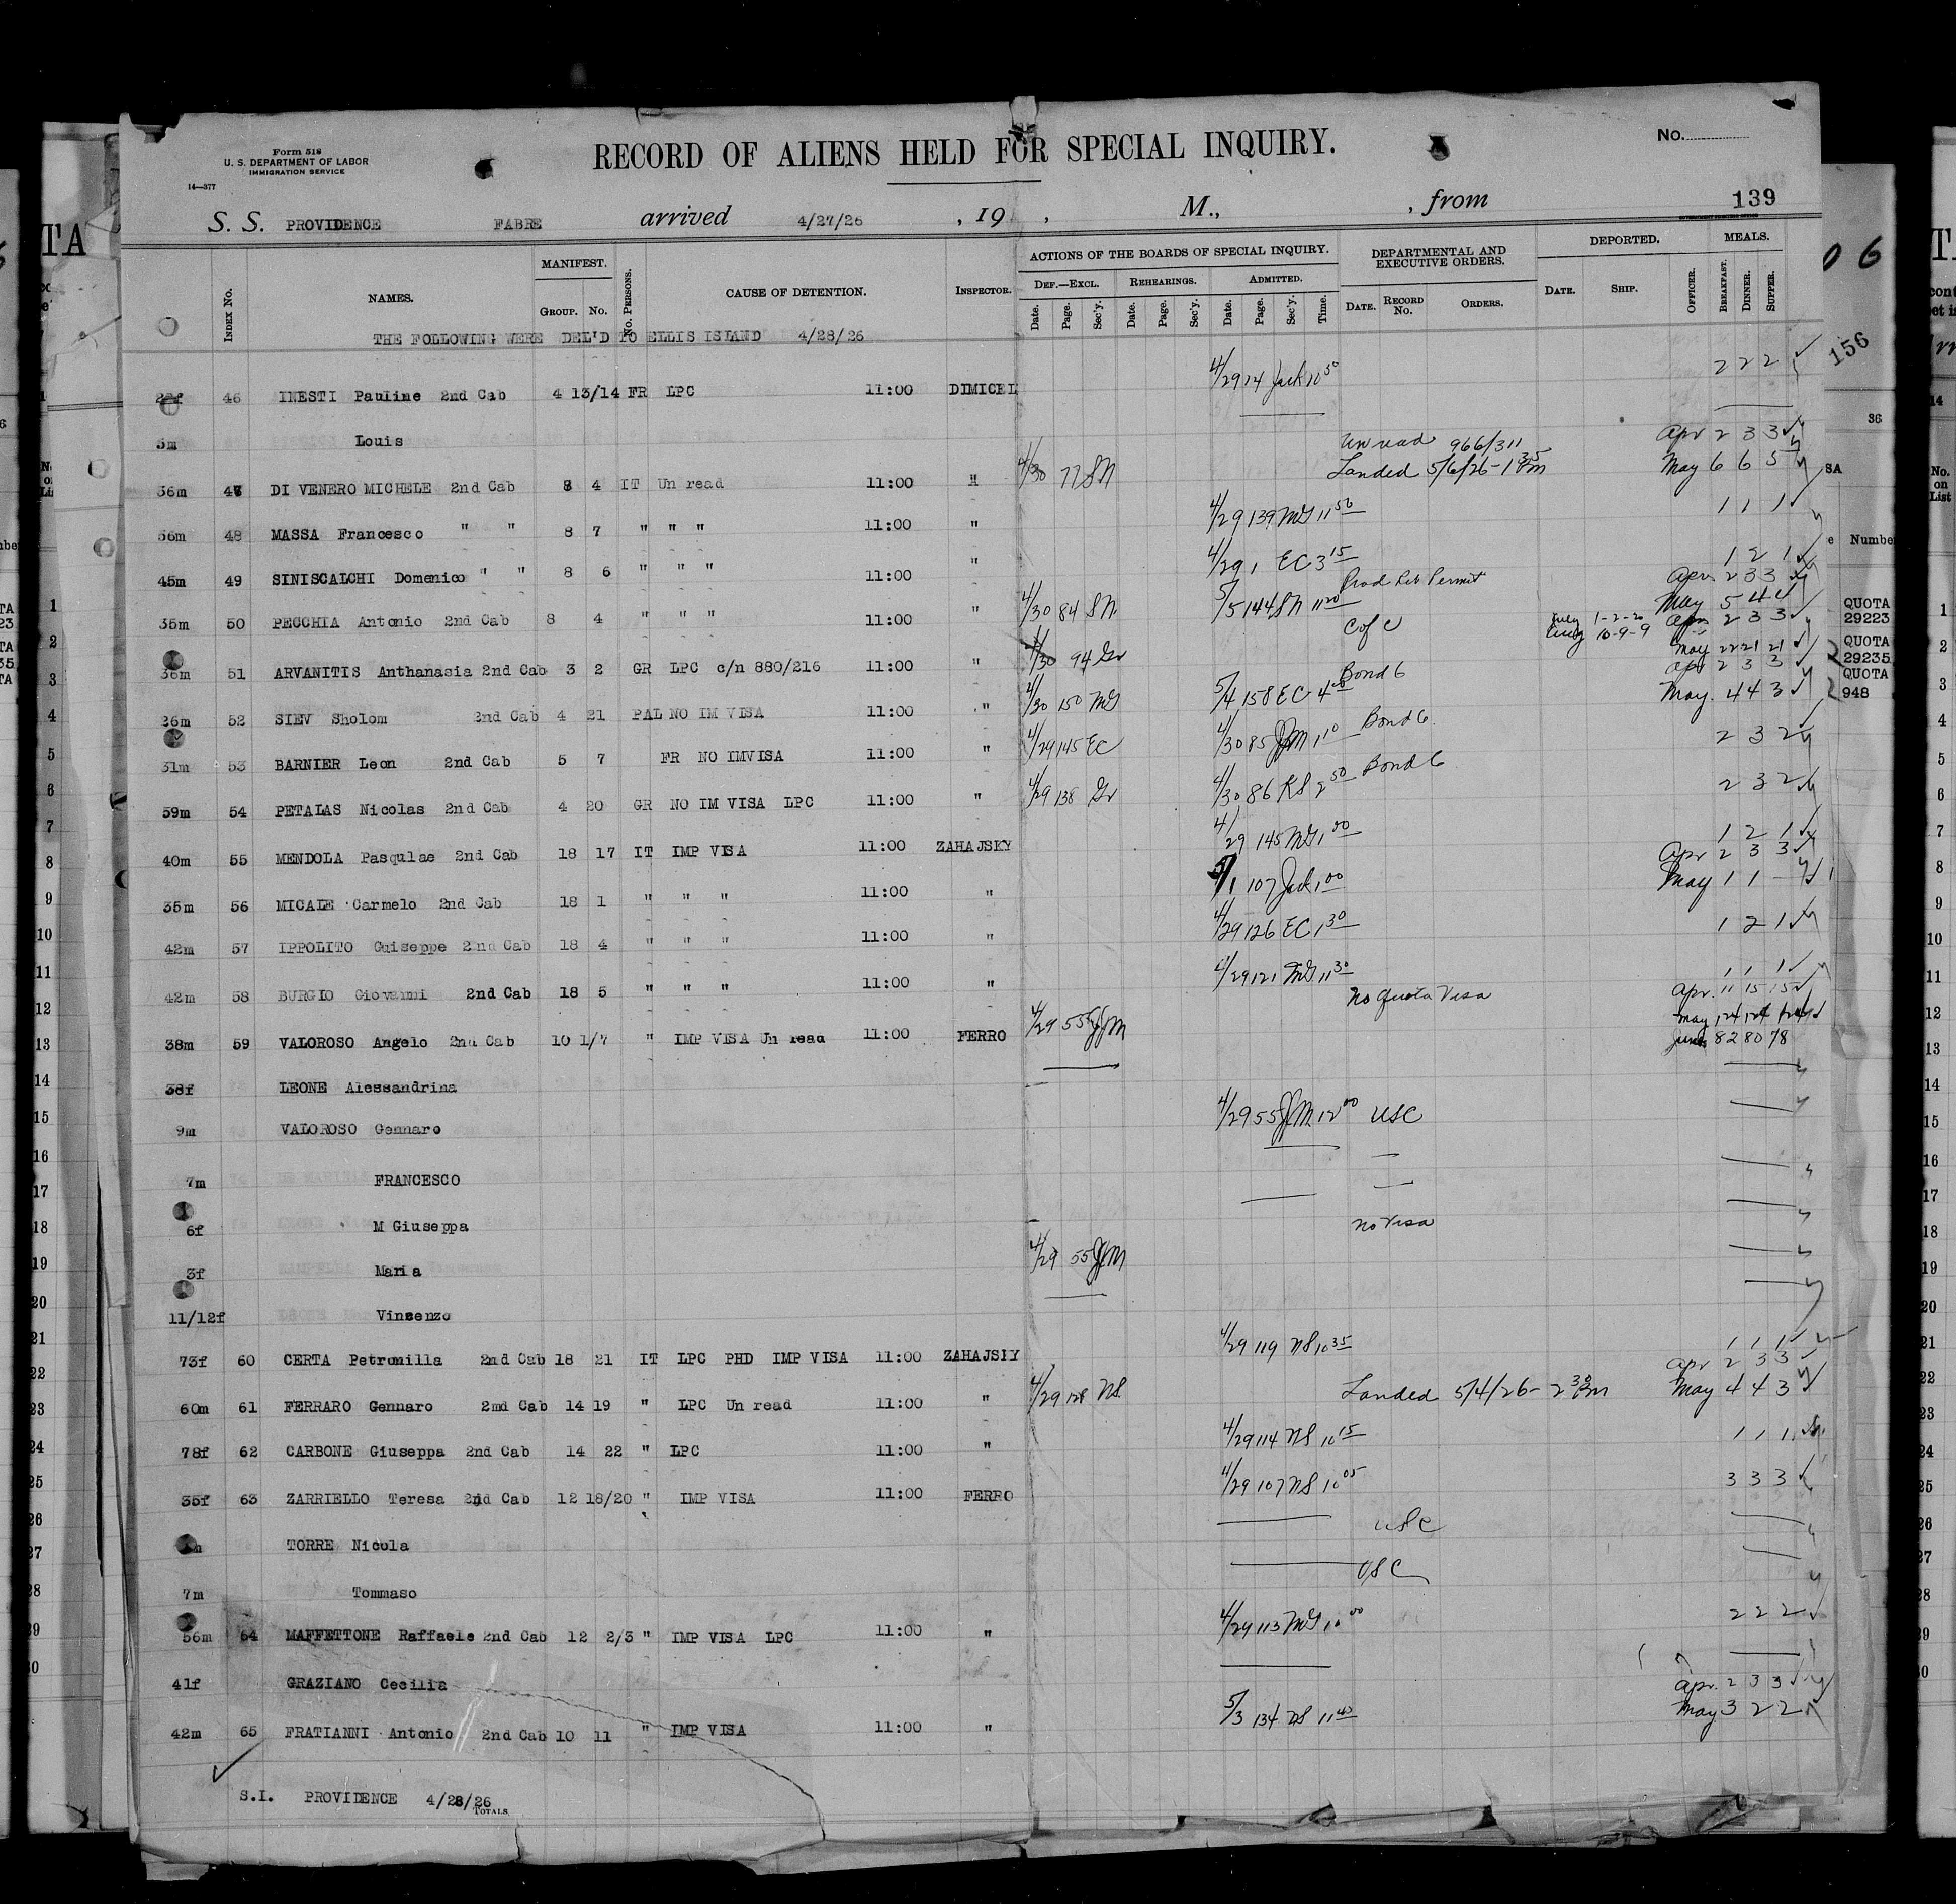 Form 518
U. S. DEPARTMENT OF LABOR
IMMIGRATION SERVICE
14—377
RECORD OF ALIENS HELD FOR SPECIAL INQUIRY.
No.
139
S. S. PROVIDENCE FABRE arrived 4/27/26 , 19 , M., , from
INDEX No. NAMES. MANIFEST. GROUP. No. No. PERSONS. CAUSE OF DETENTION. INSPECTOR. ACTIONS OF THE BOARDS OF SPECIAL INQUIRY. DEF.—EXCL. Date. Page. Sec'y. REHEARINGS. Date. Page. Sec'y. ADMITTED. Date. Page. Sec'y. Time. DEPARTMENTAL AND EXECUTIVE ORDERS. DATE. RECORD No. ORDERS. DEPORTED. DATE. SHIP. OFFICER. MEALS. BREAKFAST. DINNER. SUPPER.
THE FOLLOWING WERE DEL'D TO ELLIS ISLAND 4/28/26
46 INESTI Pauline 2nd Cab 4 13/14 FR LPC 11:00 DIMICEL 4/29 14 Jack 10 50 2 2 2
5m Louis
56m 47 DI VENERO MICHELE 2nd Cab 8 4 IT Un read 11:00 " 4/30 77 SN Un read 966/311 Landed 5/6/26 - 1 35 Pm Apr 2 3 3 May 6 6 5
56m 48 MASSA Francesco " " 8 7 " " " 11:00 " 4/29 139 MG 11 50 1 1 1
45m 49 SINISCALCHI Domenico " " 8 6 " " " 11:00 " 4/29 1 EC 3 15 1 2 1
35m 50 PECCHIA Antonio 2nd Cab 8 4 " " " 11:00 " 4/30 84 SN 5/5 144 SN 11 20 Prod Permit Apr 2 3 3 May 5 4 4
36m 51 ARVANITIS Anthanasia 2nd Cab 3 2 GR LPC c/n 880/216 11:00 " 4/30 94 Gr C of C July 1-2-2 10-9-9 Apr 2 3 3 May 22 21 21
26m 52 SIEV Sholom 2nd Cab 4 21 PAL NO IM VISA 11:00 " 4/30 150 MG 5/4 158 EC 4 Bond 6 Apr 2 3 3 May 4 4 3
31m 53 BARNIER Leon 2nd Cab 5 7 FR NO IMVISA 11:00 " 4/29 145 EC 4/30 85 JJM 1 10 Bond 6 2 3 2
59m 54 PETALAS Nicolas 2nd Cab 4 20 GR NO IM VISA LPC 11:00 " 4/29 138 Gr 4/30 86 KS 2 50 Bond 6 2 3 2
40m 55 MENDOLA Pasqulae 2nd Cab 18 17 IT IMP VISA 11:00 ZAHAJSKY 4/29 145 MG 1 00 1 2 1
35m 56 MICALE Carmelo 2nd Cab 18 1 " " " 11:00 " 5/1 107 Jack 1 00 Apr 2 3 3 May 1 1 —
42m 57 IPPOLITO Guiseppe 2nd Cab 18 4 " " " 11:00 " 4/29 126 EC 1 30 1 2 1
42m 58 BURGIO Giovanni 2nd Cab 18 5 " " " 11:00 " 4/29 121 MG 11 30 1 1 1
38m 59 VALOROSO Angelo 2nd Cab 10 1/7 " IMP VISA Un read 11:00 FERRO 4/29 55 JJM No Quota Visa Apr. 11 15 15 May 124 124 June 82 80 78
38f LEONE Alessandrina
9m VALOROSO Gennaro 4/29 55 JJM 12 00 USC
7m FRANCESCO
6f M Giuseppa
3f Maria 4/29 55 JJM No Visa
11/12f Vinsenzo
73f 60 CERTA Petronilla 2nd Cab 18 21 IT LPC PHD IMP VISA 11:00 ZAHAJSKY 4/29 119 NS 10 35 1 1 1
60m 61 FERRARO Gennaro 2nd Cab 14 19 " LPC Un read 11:00 " 4/29 128 NS Landed 5/4/26 - 2 30 Pm Apr 2 3 3 May 4 4 3
78f 62 CARBONE Giuseppa 2nd Cab 14 22 " LPC 11:00 " 4/29 114 NS 10 15 1 1 1
35f 63 ZARRIELLO Teresa 2nd Cab 12 18/20 " IMP VISA 11:00 FERRO 4/29 107 NS 10 05 3 3 3
TORRE Nicola USC
7m Tommaso USC
56m 64 MAFFETTONE Raffaele 2nd Cab 12 2/3 " IMP VISA LPC 11:00 " 4/29 113 MG 10 00 2 2 2
41f GRAZIANO Cecilia
42m 65 FRATIANNI Antonio 2nd Cab 10 11 " IMP VISA 11:00 " 5/3 134 NS 11 40 Apr. 2 3 3 May 3 2 2
S.I. PROVIDENCE 4/28/26
TOTALS
06
156
36
Number
QUOTA
29223
QUOTA
29235
QUOTA
948